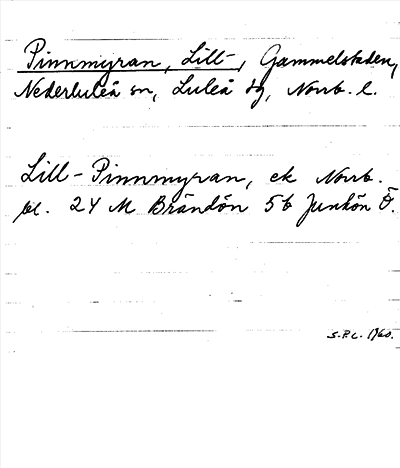 Pinnmyran, Lill-, Gammelstaden,
Nederluleå sn, Luleå tg, Norrb. l.
Lill-Pinnmyran, ek Norrb.
bl. 24 M Brändön 5b Junkön Ö.
S.P.L. 1960.